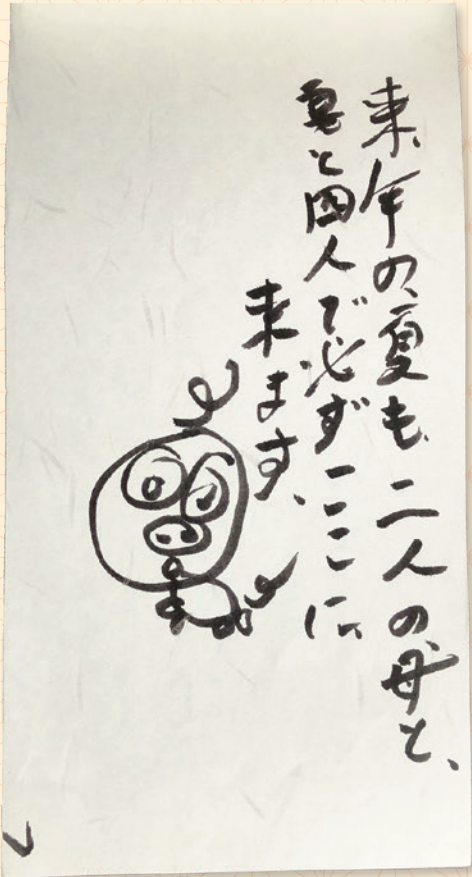 来年の夏も、二人の母と、
妻と四人で必ずここに
来ます。